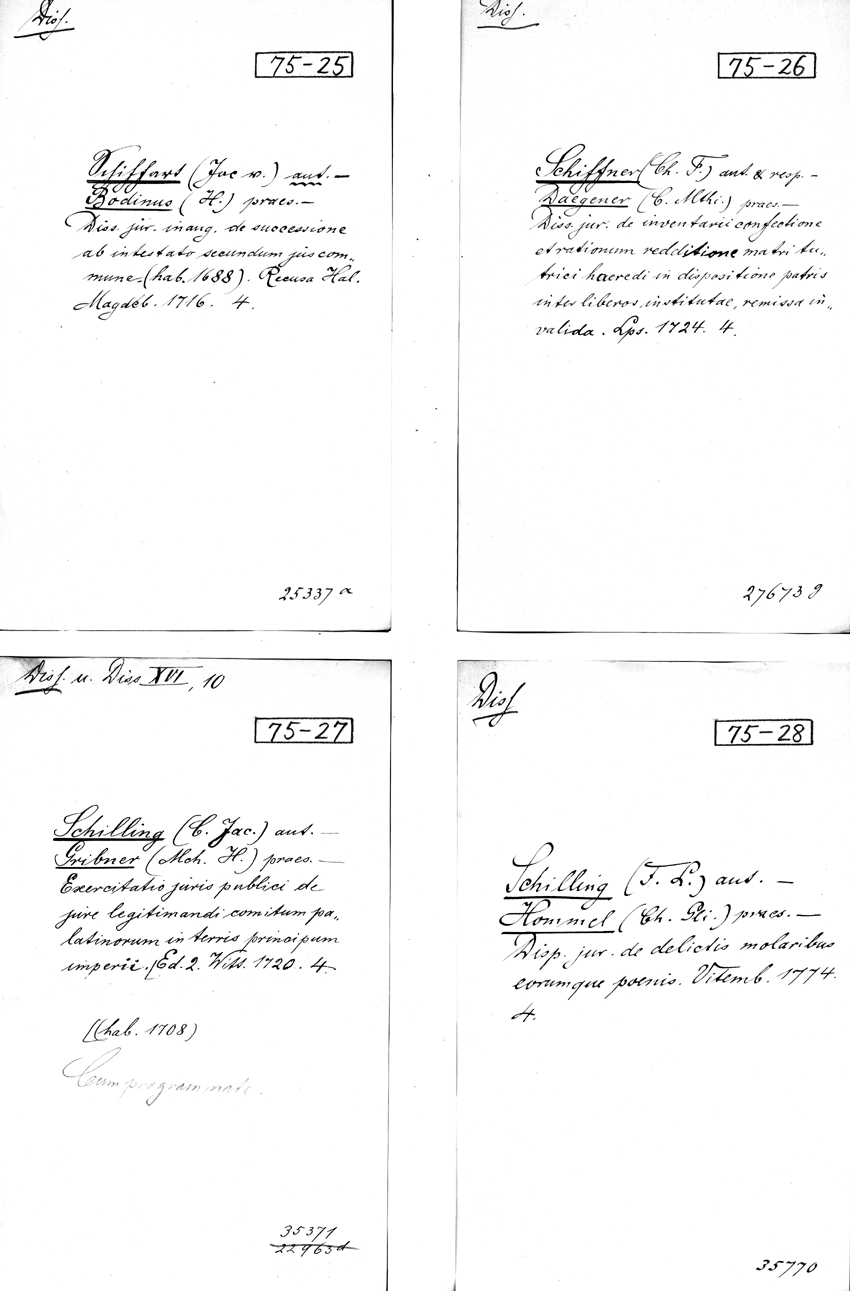 Diss.
75-25
Schiffart (Joc v.) aut. —
Bodinus (H.) praes. —
Diss. jur. inaug. de successione
ab intestato secundum jus com„
mune. (hab. 1688). Recusa Hal.
Magdeb. 1716. 4.
25337 a
Diss.
75-26
Schiffner (Ch. F.) aut. & resp. —
Daegener (C. Mthi.) praes. —
Diss. jur. de inventarii confectione
et rationum redditione matri tu„
trici haeredi in dispositione patris
inter liberos, institutae, remissa in„
valida. Lps. 1724. 4.
27673 g
Diss. u. Diss XVI, 10
75-27
Schilling (C. Jac.) aut. —
Gribner (Mch. H.) praes. —
Exercitatio juris publici de
jure legitimandi comitum pa„
latinorum in terris principum
imperii. (Ed. 2. Witt. 1720. 4.
((hab. 1708)
Cum programmate.
35371
22965d
Diss
75-28
Schilling (F. L.) aut. —
Hommel (Ch. Gli.) praes. —
Disp. jur. de delictis molaribus
eorumque poenis. Vitemb. 1774.
4.
35770